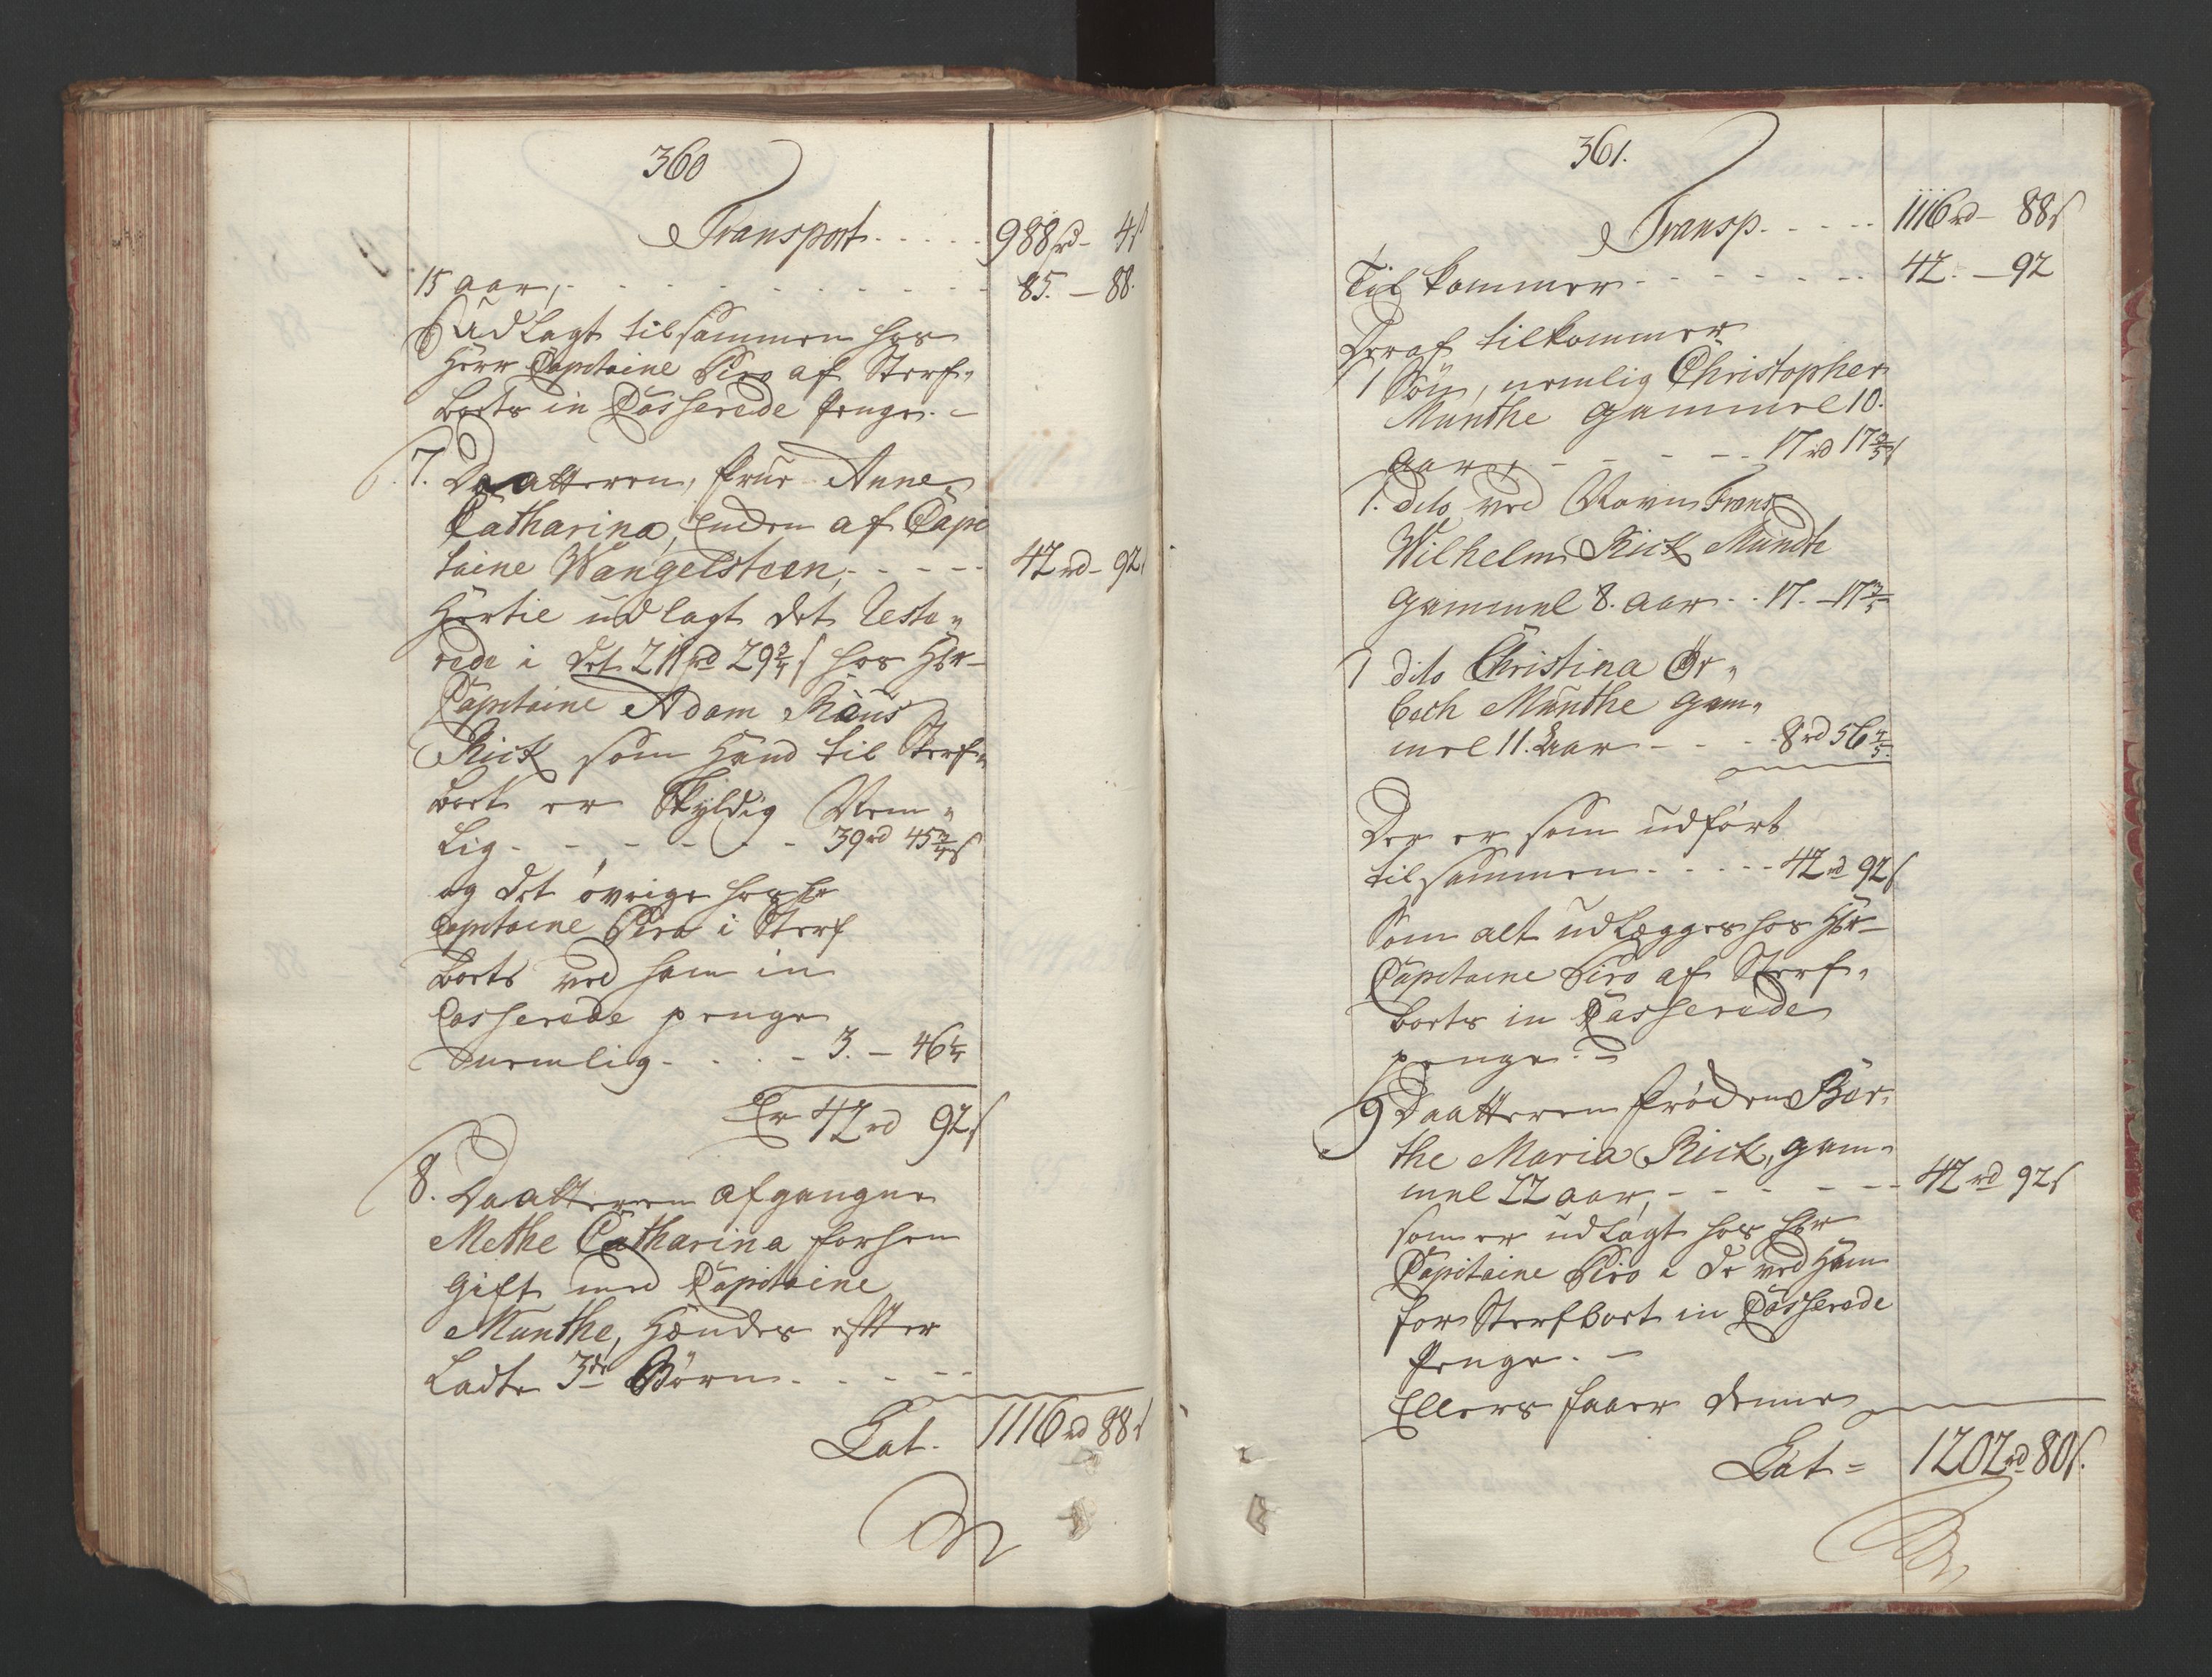 360
Transport . . . . . 988rd - 4ß
15 aar, - - - - - - - - 85. - 88.
Udlagt tilsammen hos
Herr Capitaine Siro af Sterf-
boets in Casserede Penge. -
7. Daatteren, Frue Anne
Catharina, Enden af Capi
taine Wangelsteen, - - - - - 42rd - 92ß
Hertil udlagt det Resta-
rede i det 211rd 29 3/4ß hos Hr-
Capitaine Adam
Rick som Hand til Sterf-
boet er Skyldig Nem-
lig - - - - - - 39rd 45 3/4ß
og det øvrige hos Hr
Capitaine Siro i Sterf
boets ved ham in
Casserede penge
nemlig - . . . - 3. - 46 1/4
Er 42rd 92ß
8. Daatteren afgangne
Methe Catharina forhen
gift med Capitaine
Munthe, Hendes efter
Ladte 3de Børn . . - - -
Lat. 1116rd 88ß
361.
Transp. . . . . 1116rd - 88ß
Tilkommer - - - - - - - 42. - 92
Deraf tilkommer
1 Søn, nemlig Christopher
Munthe gammel 10.
aar, - - - - - 17rd 17 3/5ß
1. dito ved Navn Frans
Wilhelm Rick Munthe
gammel 8. aar - . 17. - 17 3/5
1 dito Christina Or-
bech Munthe gam-
mel 11. Aar - - - . 8rd 56 4/5.
Der er som udført
tilsammen . . . . - - 42rd 92ß
Som alt udlægges hos Hr-
Capitaine Siro af Sterf-
boets in Casserede
penge. -
9 Daatteren Frøiken Bir-
the Maria Rick, gam-
mel 22 aar, - - - - - - 42rd 92ß
som er udlagt hos Hr
Capitaine Siro i de ved Ham
for Sterfboet in Casserede
Penge. -
Ellers faaer denne
Lat = 1202rd 80ß.